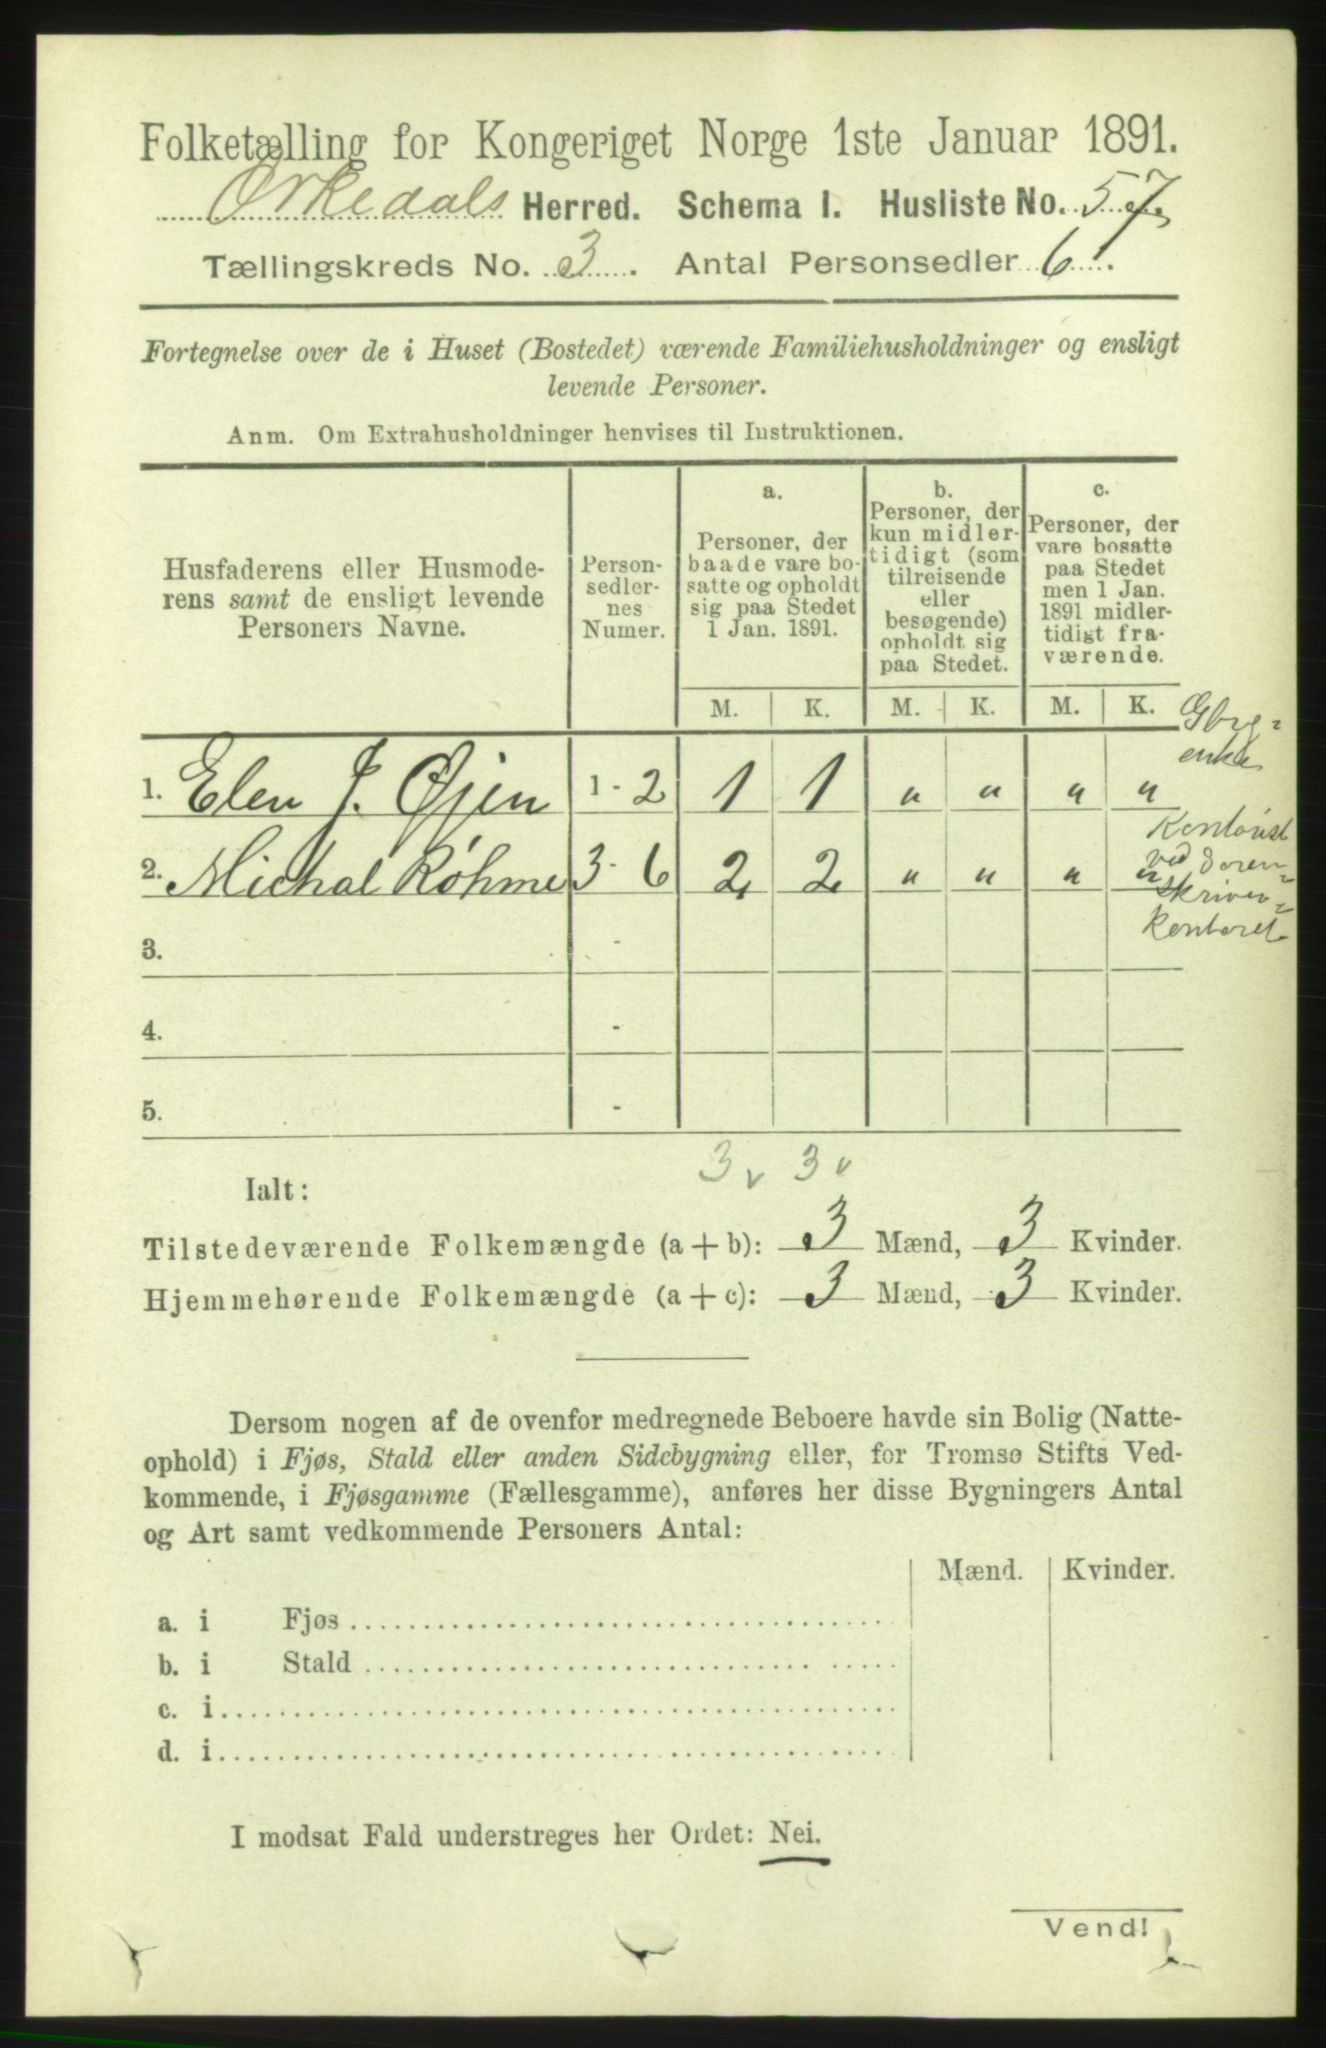 Folketælling for Kongeriget Norge 1ste Januar 1891.
Ørkedals Herred. Schema I. Husliste No. 57
Tællingskreds No. 3. Antal Personsedler 6.
Fortegnelse over de i Huset (Bostedet) værende Familiehusholdninger og ensligt
levende Personer.
Anm. Om Extrahusholdninger henvises til Instruktionen.
Husfaderens eller Husmode-
rens samt de ensligt levende
Personers Navne.
Person-
sedler-
nes
Numer.
a.
Personer, der
baade vare bo-
satte og opholdt
sig paa Stedet
1 Jan. 1891.
b.
Personer, der
kun midler-
tidigt (som
tilreisende
eller
besøgende)
opholdt sig
paa Stedet.
c.
Personer, der
vare bosatte
paa Stedet
men 1 Jan.
1891 midler-
tidigt fra-
værende.
M. K. M. K. M. K.
enke
1. Elen J. Øjen 1 - 2 1 1 " " " "
2. Michal Røhme 3 - 6 2 2 " " " "
ved Soren-
skriver-
kontoret
3. -
4. -
5. -
3 v 3 v
Ialt:
Tilstedeværende Folkemængde (a + b): 3 Mænd, 3 Kvinder.
Hjemmehørende Folkemængde (a + c): 3 Mænd, 3 Kvinder.
Dersom nogen af de ovenfor medregnede Beboere havde sin Bolig (Natte-
ophold) i Fjøs, Stald eller anden Sidebygning eller, for Tromsø Stifts Ved-
kommende, i Fjøsgamme (Fællesgamme), anføres her disse Bygningers Antal
og Art samt vedkommende Personers Antal:
Mænd. Kvinder.
a. i Fjøs
b. i Stald
c. i
d. i
I modsat Fald understreges her Ordet: Nei.
Vend!